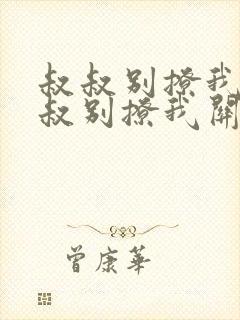 叔叔别撩我
叔别撩我開
曾康華